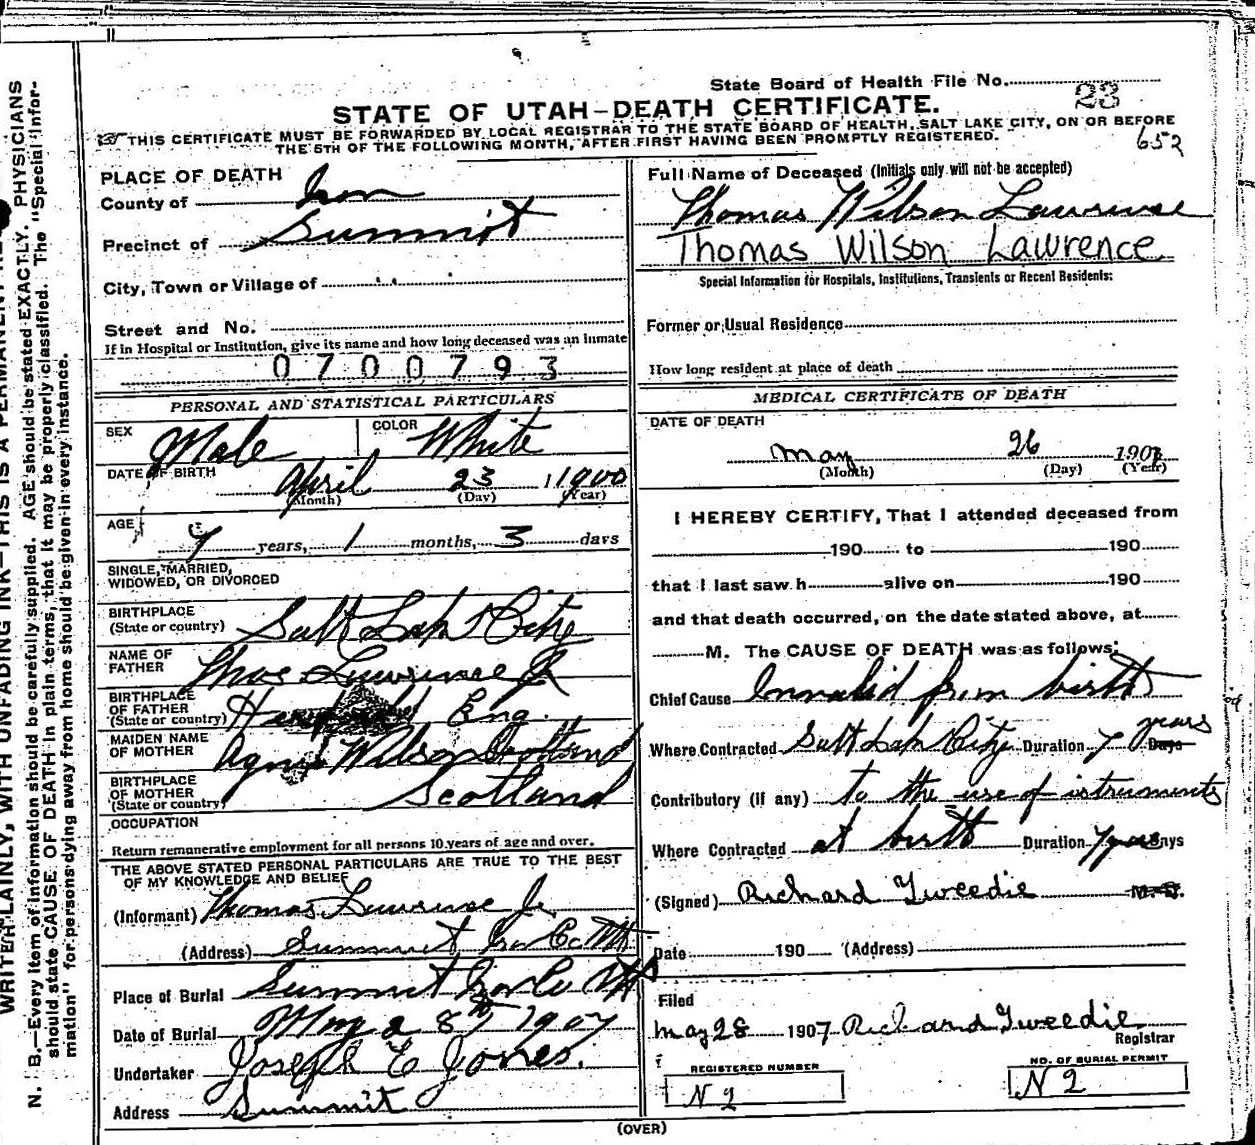 State Board of Health File No. 23
STATE OF UTAH—DEATH CERTIFICATE.
THIS CERTIFICATE MUST BE FORWARDED BY LOCAL REGISTRAR TO THE STATE BOARD OF HEALTH, SALT LAKE CITY, ON OR BEFORE
THE 5TH OF THE FOLLOWING MONTH, AFTER FIRST HAVING BEEN PROMPTLY REGISTERED.
652
PLACE OF DEATH
County of Iron
Precinct of Summit
City, Town or Village of
Street and No.
If in Hospital or Institution, give its name and how long deceased was an inmate
0700793
PERSONAL AND STATISTICAL PARTICULARS
SEX Male COLOR White
DATE OF BIRTH April 23 1900
(Month) (Day) (Year)
AGE 7 years, 1 months, 3 days
SINGLE, MARRIED,
WIDOWED, OR DIVORCED
BIRTHPLACE
(State or country) Salt Lake City
NAME OF
FATHER Thos Lawrence Jr
BIRTHPLACE
OF FATHER
(State or country) Eng.
MAIDEN NAME
OF MOTHER Agnes Wilson Scotland
BIRTHPLACE
OF MOTHER
(State or country) Scotland
OCCUPATION
Return remunerative employment for all persons 10 years of age and over.
THE ABOVE STATED PERSONAL PARTICULARS ARE TRUE TO THE BEST
OF MY KNOWLEDGE AND BELIEF
(Informant) Thomas Lawrence Jr.
(Address) Summit Iron Co. Ut
Place of Burial Summit Iron Co Ut
Date of Burial May 28th 1907
Undertaker Joseph E Jones.
Address Summit
Full Name of Deceased (Initials only will not be accepted)
Thomas Wilson Lawrense
Thomas Wilson Lawrence
Special Information for Hospitals, Institutions, Transients or Recent Residents:
Former or Usual Residence
How long resident at place of death
MEDICAL CERTIFICATE OF DEATH
DATE OF DEATH
May 26 1907
(Month) (Day) (Year)
I HEREBY CERTIFY, That I attended deceased from
190 to 190
that I last saw h alive on 190
and that death occurred, on the date stated above, at
M. The CAUSE OF DEATH was as follows:
Chief Cause Invalid from birth
Where Contracted Salt Lake City Duration 7 years Days
Contributory (if any) to the use of istruments
Where Contracted at birth Duration 7 years Days
(Signed) Richard Tweedie M. D.
Date 190 (Address)
Filed
May 28 1907 Richard Tweedie
Registrar
REGISTERED NUMBER
N 2
NO. OF BURIAL PERMIT
N 2
(OVER)
WRITE PLAINLY, WITH UNFADING INK—THIS IS A PERMANENT
N. B.—Every item of information should be carefully supplied. AGE should be stated EXACTLY. PHYSICIANS
should state CAUSE OF DEATH in plain terms, that it may be properly classified. The "Special Infor-
mation" for persons dying away from home should be given in every instance.